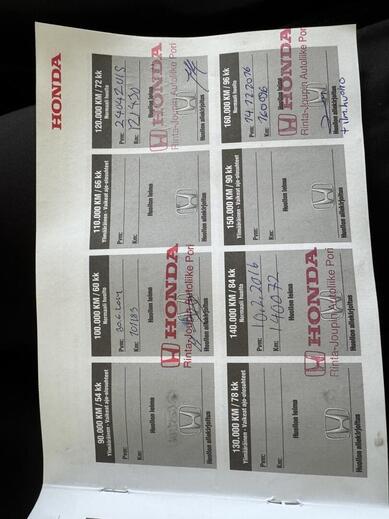 HONDA
90.000 KM / 54 kk
Ylimääräinen - Vaikeat ajo-olosuhteet
Pvm:
Km:
Huollon leima
Huollon allekirjoitus
100.000 KM / 60 kk
Normaali huolto
Pvm: 30.6.2014
Km: 101183
Huollon leima
HONDA
Rinta-Joupin Autoliike Pori
110.000 KM / 66 kk
Ylimääräinen - Vaikeat ajo-olosuhteet
Pvm:
Km:
Huollon leima
Huollon allekirjoitus
120.000 KM / 72 kk
Normaali huolto
Pvm: 24042015
Km: 121430
Huollon leima
HONDA
Rinta-Joupin Autoliike Pori
Huollon allekirjoitus
130.000 KM / 78 kk
Ylimääräinen - Vaikeat ajo-olosuhteet
Pvm:
Km:
Huollon leima
Huollon allekirjoitus
140.000 KM / 84 kk
Normaali huolto
Pvm: 10.2.2016
Km: 140072
Huollon leima
HONDA
Rinta-Joupin Autoliike Pori
Huollon allekirjoitus
150.000 KM / 90 kk
Ylimääräinen - Vaikeat ajo-olosuhteet
Pvm:
Km:
Huollon leima
Huollon allekirjoitus
160.000 KM / 96 kk
Normaali huolto
Pvm: 14.12.2016
Km:
Huollon leima
HONDA
Rinta-Joupin Autoliike Pori
Huollon allekirjoitus